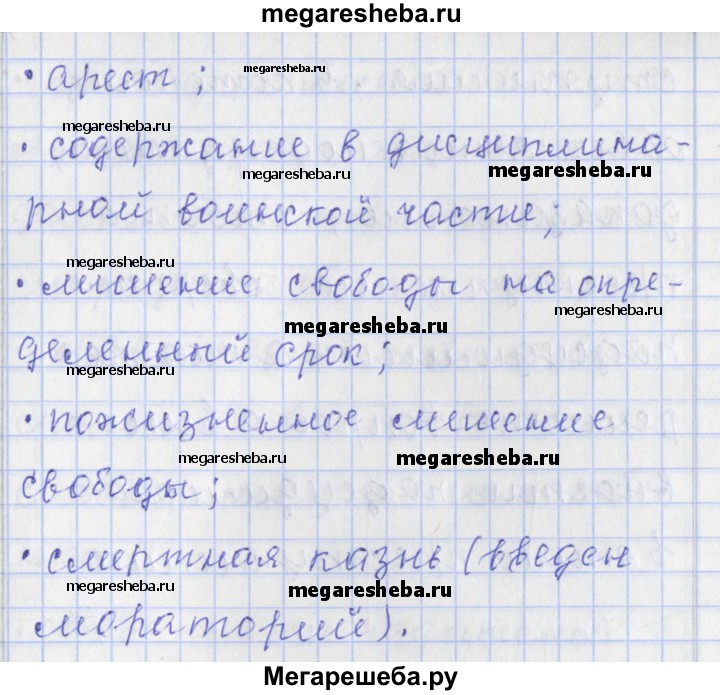 megaresheba.ru
• арест; megaresheba.ru
megaresheba.ru
• содержание в дисциплина-
megaresheba.ru megaresheba.ru
рной воинской части;
megaresheba.ru
• лишение свободы на опре-
megaresheba.ru
megaresheba.ru
деленный срок;
megaresheba.ru
• пожизненное лишение
megaresheba.ru megaresheba.ru
свободы;
• смертная казнь (введен
megaresheba.ru megaresheba.ru
мораторий).
Мегарешеба.ру